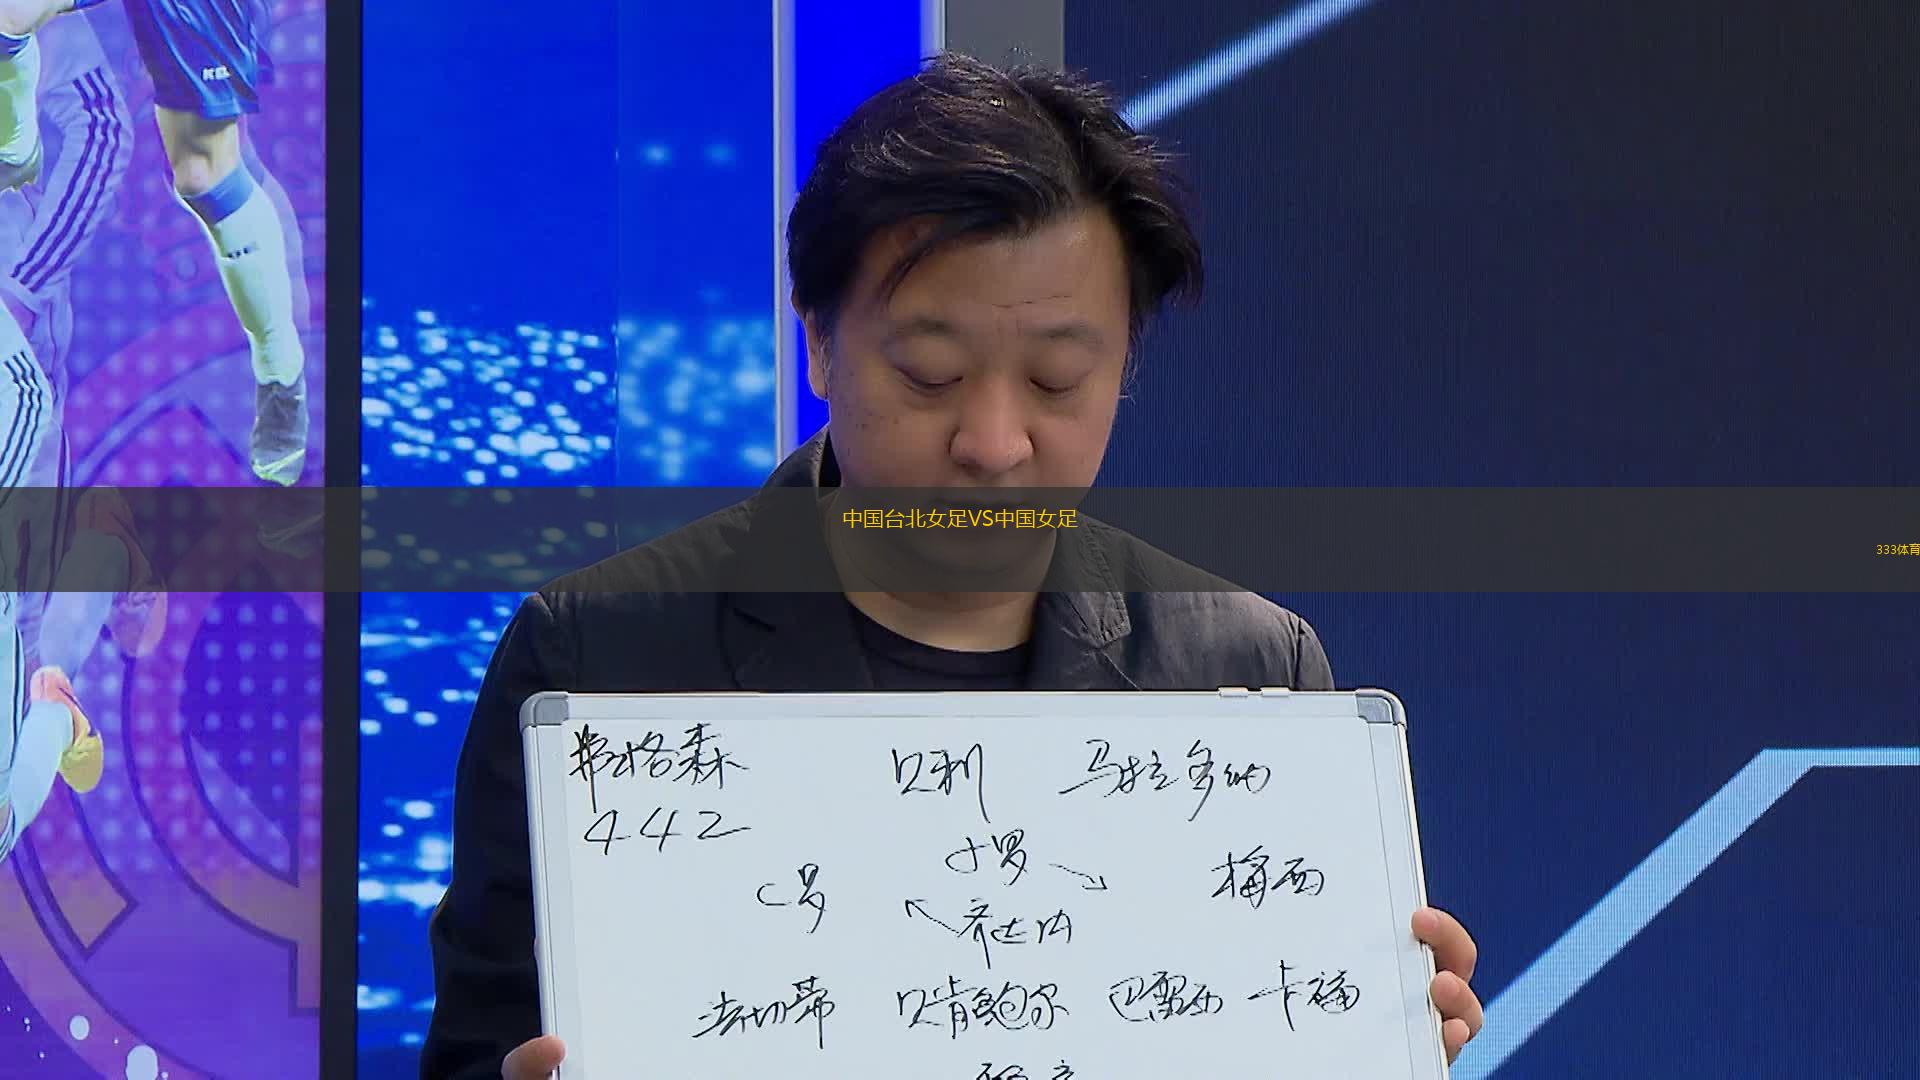 中国台北女足VS中国女足
333体育
弗格森 贝利 马拉多纳
442
小罗
C罗 梅西
齐达内
法切蒂 贝肯鲍尔 巴雷西 卡福